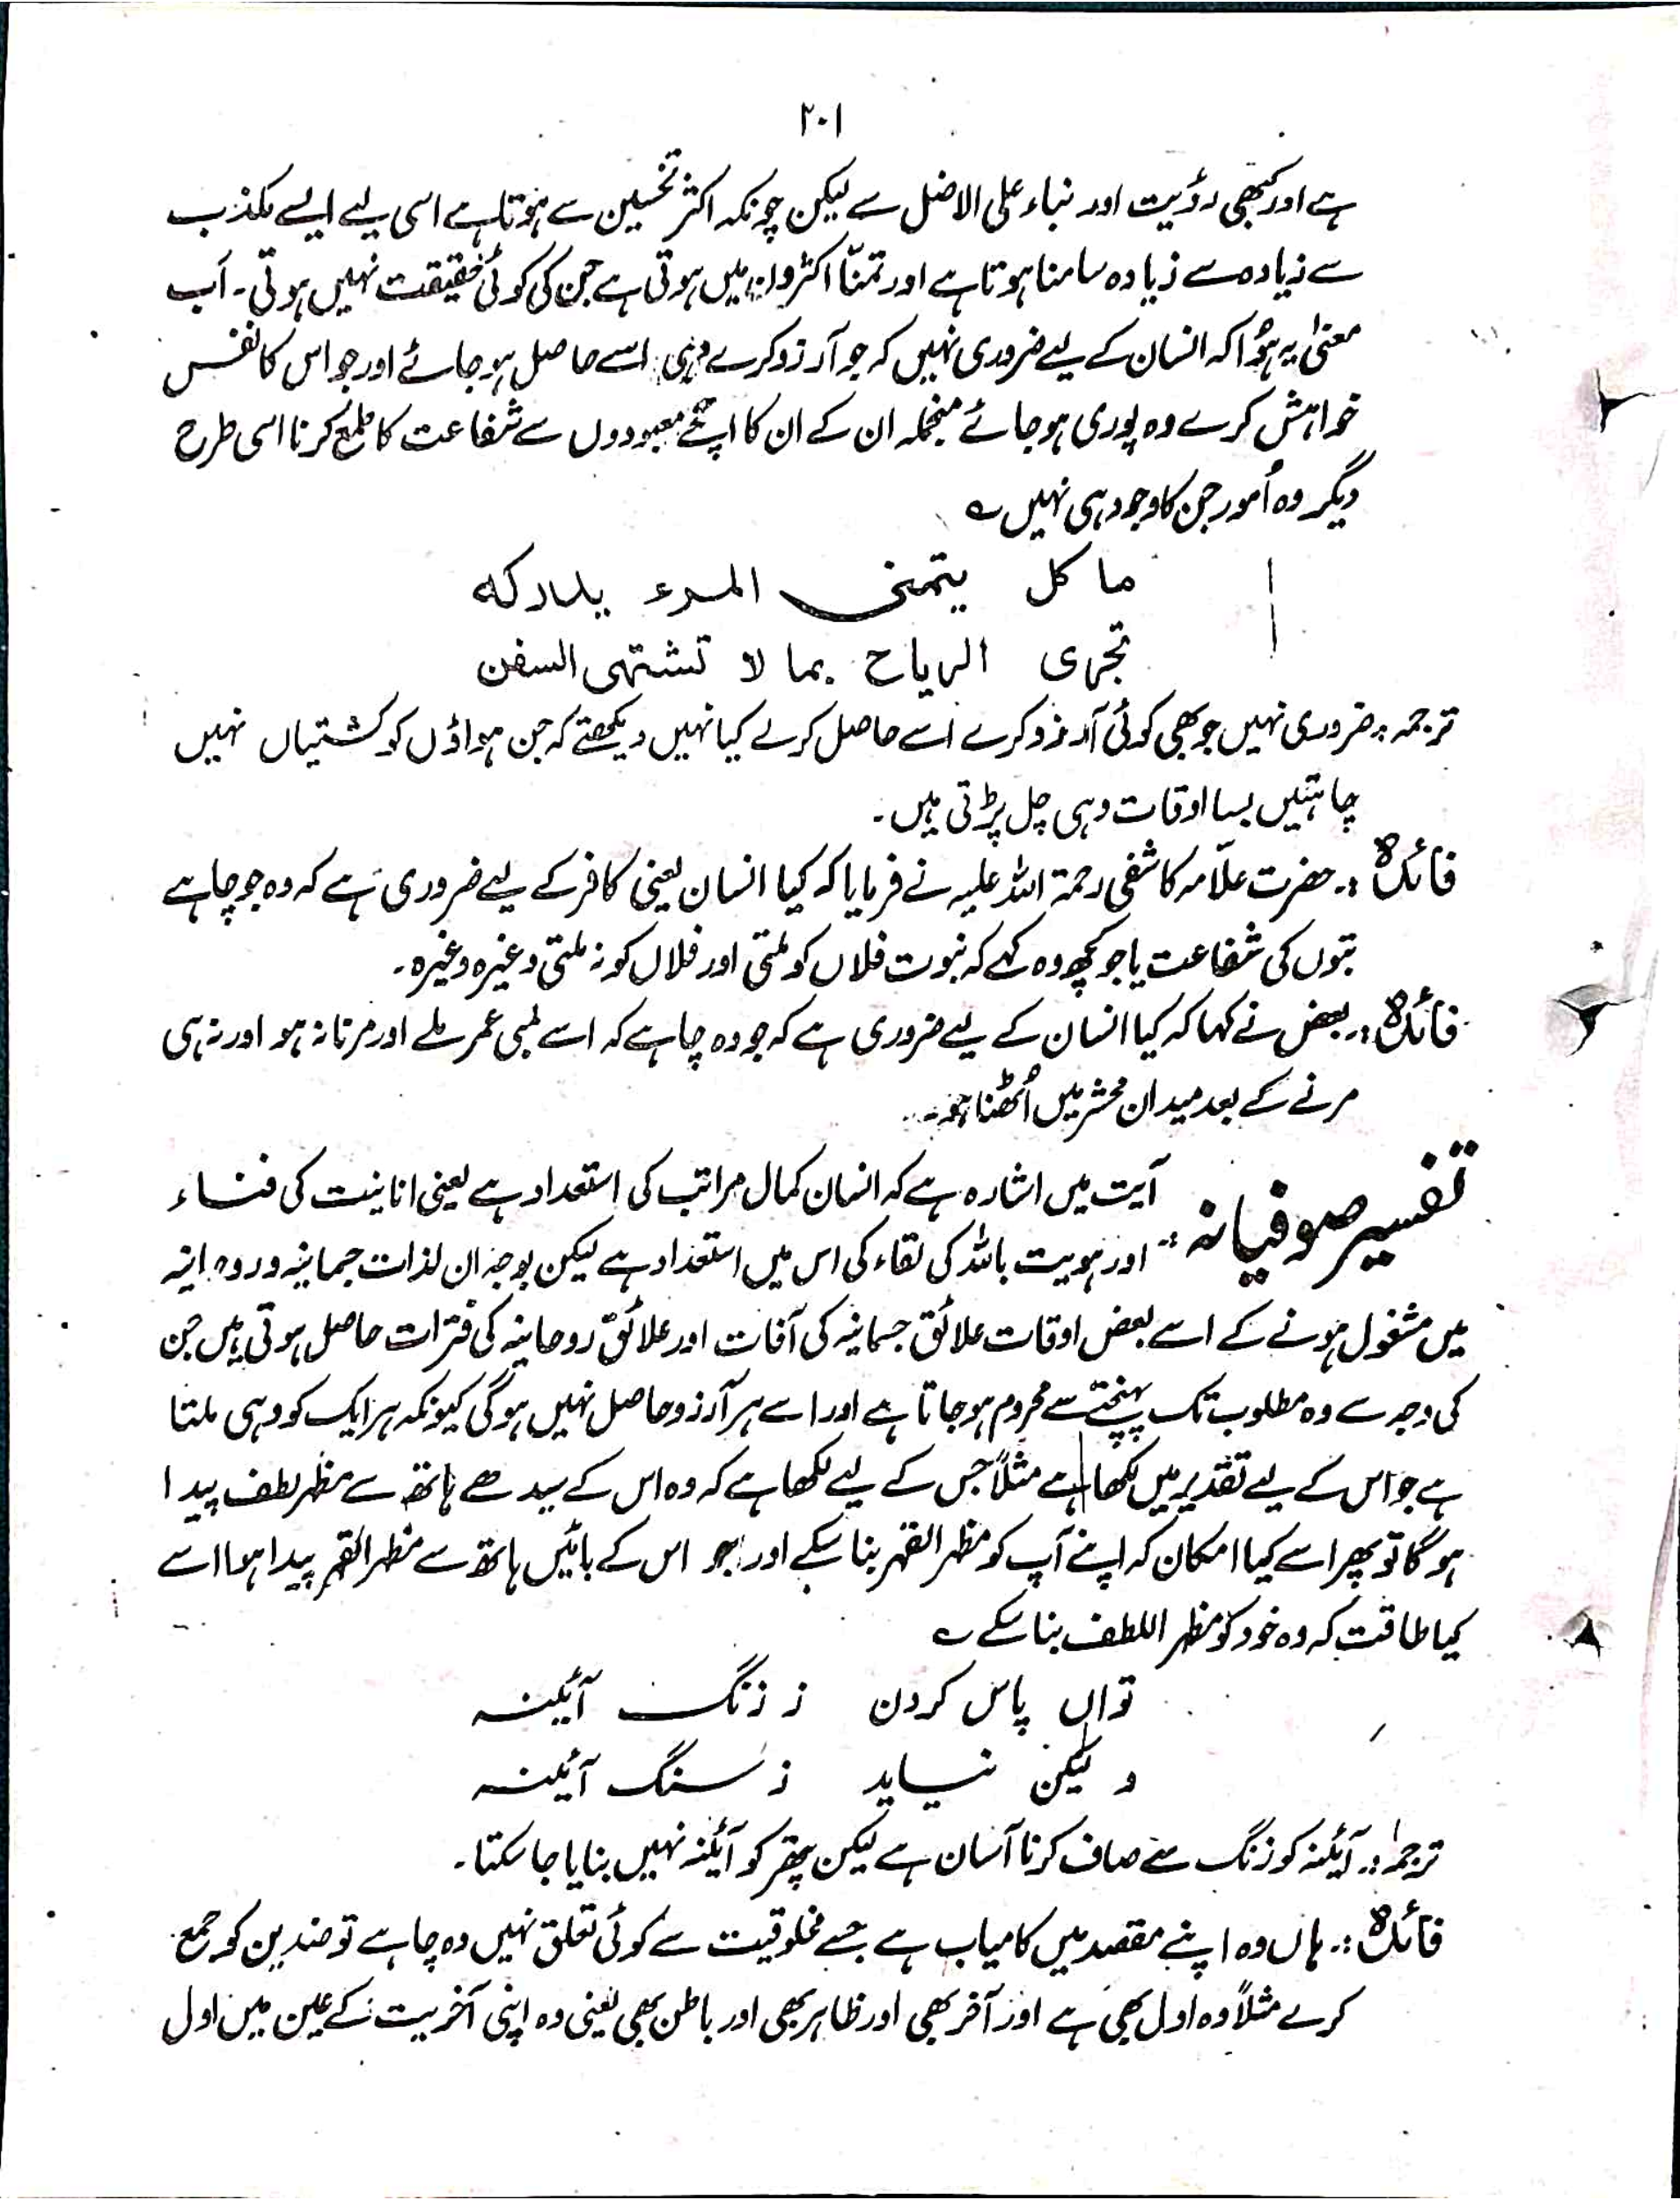 ۲۰۱
ہے اور کبھی رؤیت اور بناء علی الاصل سے لیکن چونکہ اکثر تخمین سے ہوتا ہے اسی لیے ایسے مکذب
سے زیادہ سے زیادہ سامنا ہوتا ہے اور تمنّا اکثر ان میں ہوتی ہے جن کی کوئی حقیقت نہیں ہوتی۔ اَب
معنیٰ یہ ہُوا کہ انسان کے لیے ضروری نہیں کہ جو آرزو کرے وہی اسے حاصل ہو جائے اور جو اس کا نفس
خواہش کرے وہ پوری ہو جائے منجملہ ان کے ان کا اپنے معبودوں سے شفاعت کا طمع کرنا اسی طرح
دیگر وہ اُمور جن کا وجود ہی نہیں ؎
ما کل یتمنی المرء یدرکه
تجری الریاح بما لا تشتهی السفن
ترجمہ :۔ ضروری نہیں جو بھی کوئی آرزو کرے اسے حاصل کرلے کیا نہیں دیکھتے کہ جن ہواؤں کو کشتیاں نہیں
چاہتیں بسا اوقات وہی چل پڑتی ہیں۔
فائدہ :۔ حضرت علاّمہ کاشفی رحمۃ اللہ علیہ نے فرمایا کہ کیا انسان یعنی کافر کے لیے ضروری ہے کہ وہ جو چاہے
بتوں کی شفاعت یا جو کچھ وہ کہے کہ نبوت فلاں کو ملتی اور فلاں کو نہ ملتی وغیرہ وغیرہ۔
فائدہ :۔ بعض نے کہا کہ کیا انسان کے لیے ضروری ہے کہ جو وہ چاہے کہ اسے لمبی عمر ملے اور مرنا نہ ہو اور نہ ہی
مرنے کے بعد میدان محشر میں اُٹھنا ہو۔
تفسیر صوفیانہ :۔ آیت میں اشارہ ہے کہ انسان کمال مراتب کی استعداد ہے یعنی انانیت کی فناء
اور ہویت باللہ کی لقاء کی اس میں استعداد ہے لیکن بوجہ ان لذات جسمانیہ و روحانیہ
میں مشغول ہونے کے اسے بعض اوقات علائق جسمانیہ کی آفات اور علائق روحانیہ کی فترات حاصل ہوتی ہیں جن
کی وجہ سے وہ مطلوب تک پہنچنے سے محروم ہو جاتا ہے اور اسے ہر آرزو حاصل نہیں ہوگی کیونکہ ہر ایک کو وہی ملتا
ہے جو اس کے لیے تقدیر میں لکھا ہے مثلاً جس کے لیے لکھا ہے کہ وہ اس کے سیدھے ہاتھ سے مظہر لطف پیدا
ہوگا تو پھر اسے کیا امکان کہ اپنے آپ کو مظہر القہر بنا سکے اور جو اس کے بائیں ہاتھ سے مظہر القہر پیدا ہوا اسے
کیا طاقت کہ وہ خود کو مظہر اللطف بنا سکے ؎
تواں پاس کردن ز زنگ آئینہ
و لیکن نیساید ز سنگ آئینہ
ترجمہ :۔ آئینہ کو زنگ سے صاف کرنا آسان ہے لیکن پتھر کو آئینہ نہیں بنایا جا سکتا۔
فائدہ :۔ ہاں وہ اپنے مقصد میں کامیاب ہے جسے مخلوقیت سے کوئی تعلق نہیں وہ چاہے تو ضدین کو جمع
کرے مثلاً وہ اول بھی ہے اور آخر بھی اور ظاہر بھی اور باطن بھی یعنی وہ اپنی آخریت کے عین میں اول